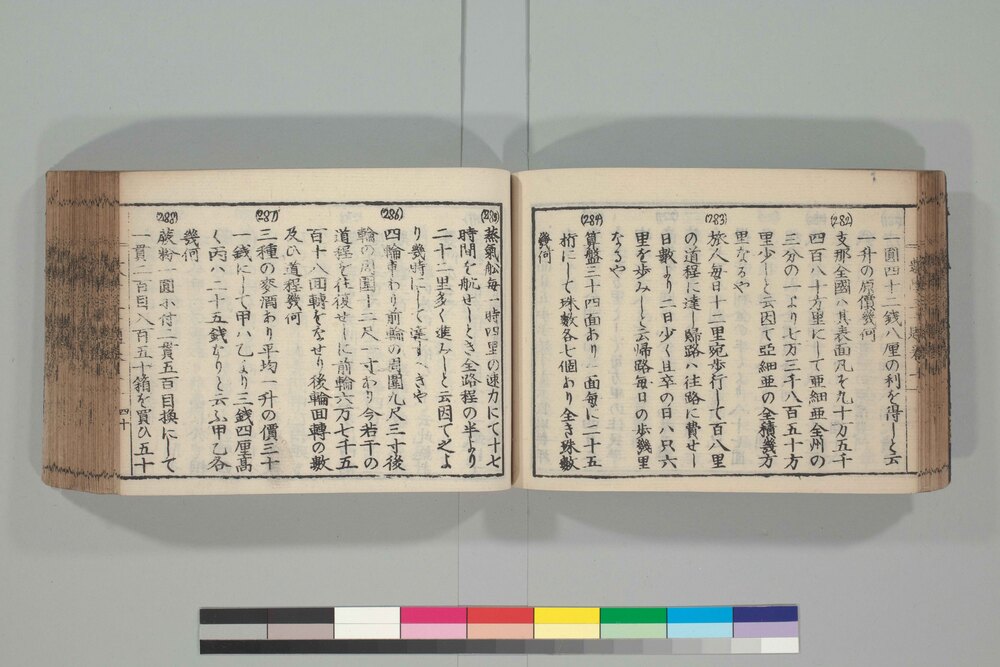 一圓四十二錢八厘の利を得しと云
一升の原價幾何
(282)
支那全國ハ其表面凡そ九十万五千
四百八十方里にして亜細亜全州の
三分の一より七万三千八百五十方
里少しと云因て亞細亜の全積幾方
里なるや
(283)
旅人毎日十二里宛歩行して百八里
の道程に達し歸路ハ往路に費せし
日數より二日少く且卒の日ハ只六
里を歩みしと云歸路毎日の歩幾里
なるや
(284)
算盤三十四面あり一面毎に二十五
桁にして珠數各七個あり全き珠數
幾何
蒸氣舩毎一時四里の速力にて十七
時間を航せしとき全路程の半より
二十二里多く進みしと云因て之よ
り幾時にして達すべきや
(286)
四輪車あり前輪の周圍九尺三寸後
輪の周圍十二尺一寸あり今若干の
道程を往復せしに前輪六万七千五
百十八回轉をなせり後輪回轉の數
及ひ道程幾何
(287)
三種の麥酒あり平均一升の價三十
一錢にして甲ハ乙より三錢四厘高
く丙ハ二十五錢なりと云ふ甲乙各
幾何
(288)
蕨粉一圓ニ付二貫五百目換にして
一貫二百目入百五十箱を買ひ五十
四十